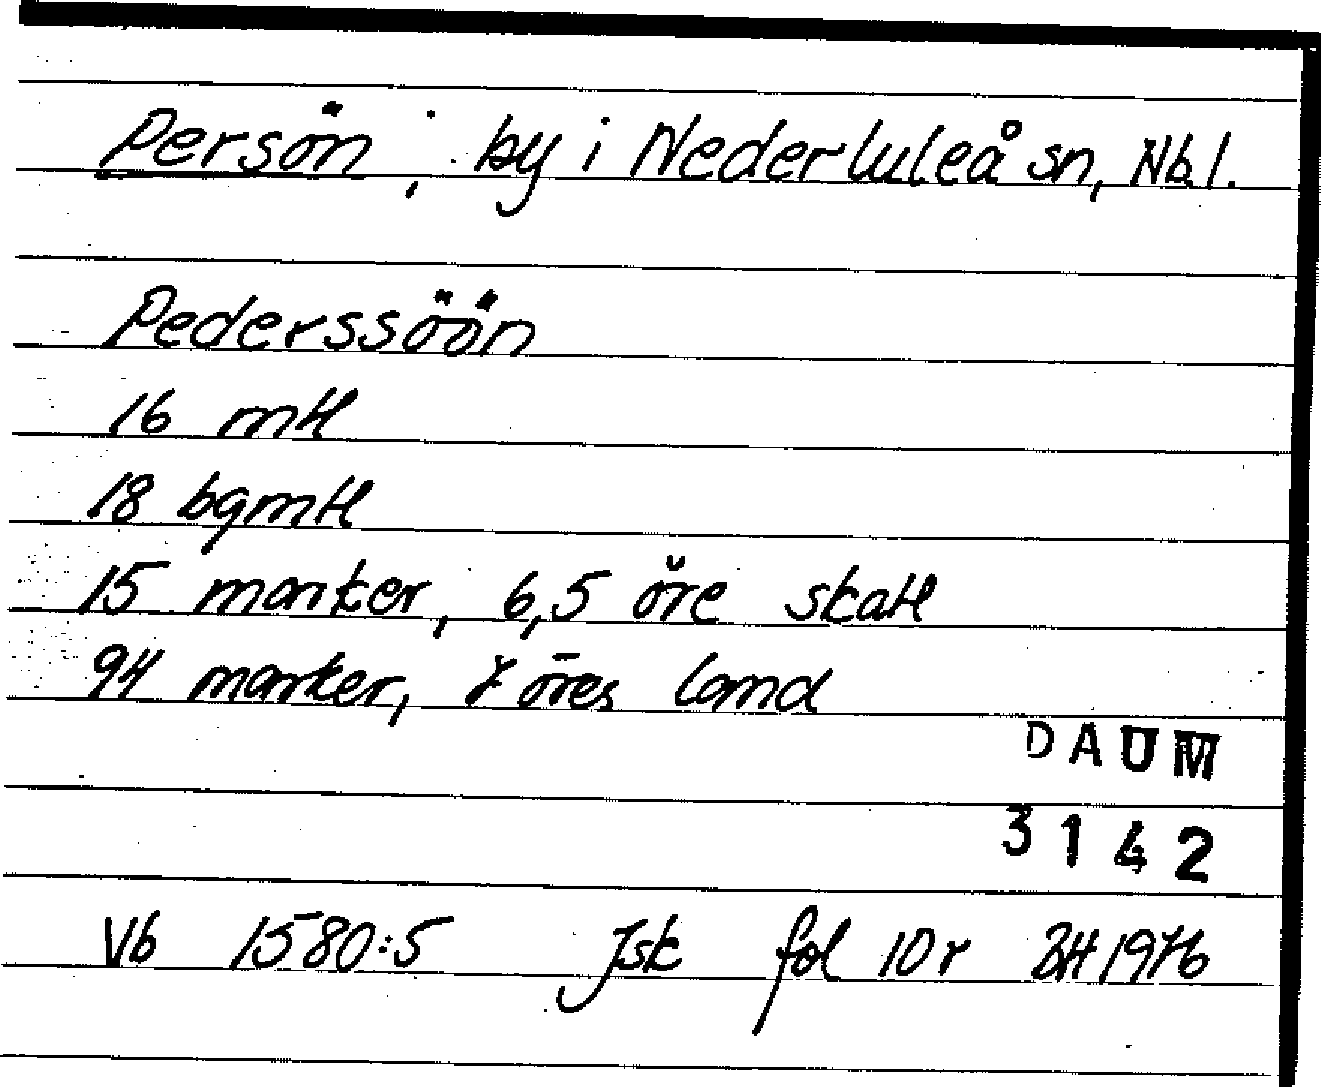 Persön, by i Nederluleå sn, Nb.l.
Pederssöön
16 mtl
18 bgmtl
15 marker, 6,5 öre skatt
94 marker, 7 öres land
DAUM
3142
Vb 1580:5 Jsk fol 10r BH 1976